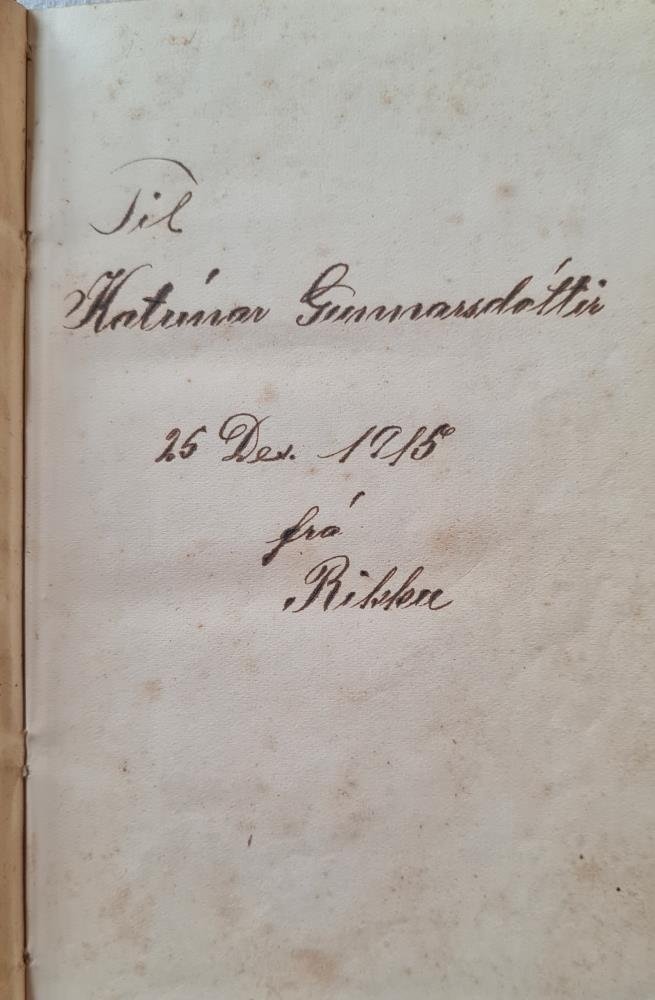 Til
Katrínar Gunnarsdóttir
25 Des. 1915
frá
Rikku